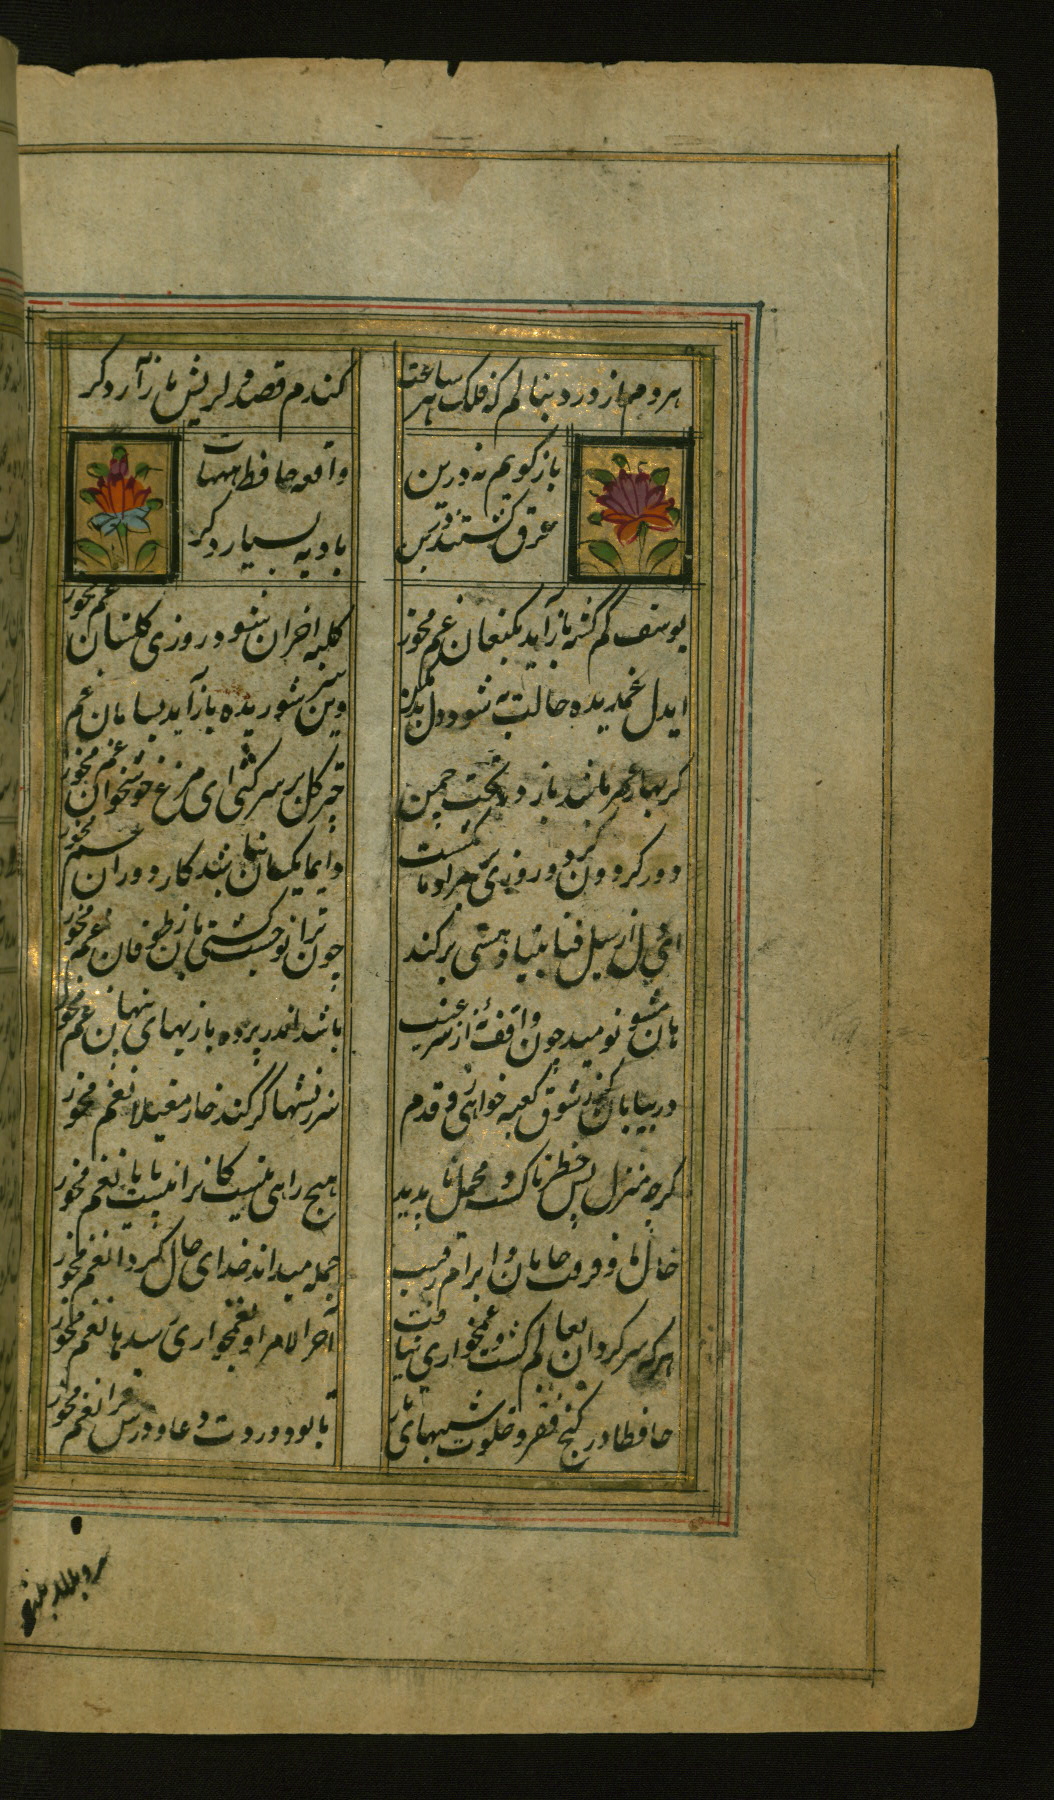 هر دم از درد بنالم که فلک هر ساعت
کندم قصد دل ریش بازار دگر
باز گویم نه درین
واقعه حافظ هیهات
غرق گشتند درین
بادیه بسیار دگر
یوسف گم گشته باز آید بکنعان غم مخور
کلبه احزان شود روزی گلستان غم مخور
ایدل غمدیده حالت به شود دل بد مکن
وین سر شوریده باز آید بسامان غم
گر بهار عمر باشد باز در تخت چمن
چتر گل بر سر کشی ای مرغ خوشخوان غم مخور
دور گردون گر دو روزی بر مراد ما نگشت
دایما یکسان نباشد کار دوران غم مخور
ایدل ار سیل فنا بنیاد هستی برکند
چون ترا نوحست کشتیبان ز طوفان غم مخور
هان مشو نومید چون واقف نه از سر غیب
باشد اندر پرده بازیهای پنهان غم مخور
در بیابان گر ز شوق کعبه خواهی زد قدم
سرزنشها گر کند خار مغیلان غم مخور
گرچه منزل بس خطرناکست و محمل ناپدید
هیچ راهی نیست کانرا نیست پایان غم مخور
حال ما و فرقت جانان و ابرام رقیب
جمله میداند خدای حال گردان غم مخور
هر که سرگردان بعالم گشت و غمخواری نیافت
آخر الامر او بغمخواری رسد هان غم مخور
حافظا در کنج فقر و خلوت شبهای تار
تا بود وردت دعا و درس قرآن غم مخور